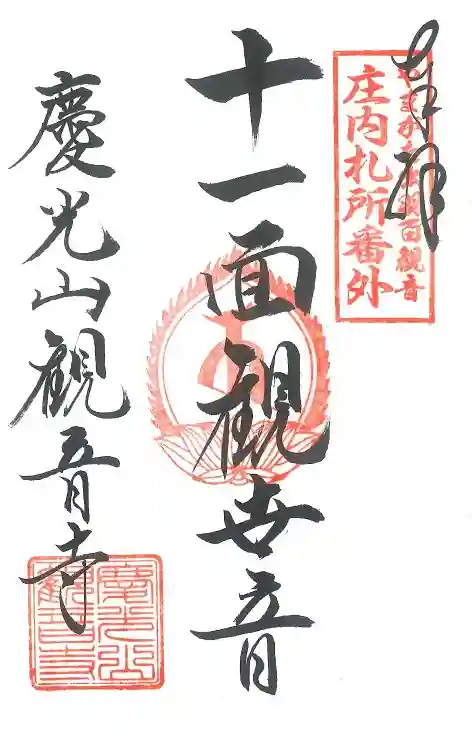 奉拝
庄内札所番外
十一面観世音
慶光山観音寺
慶光山
観音寺